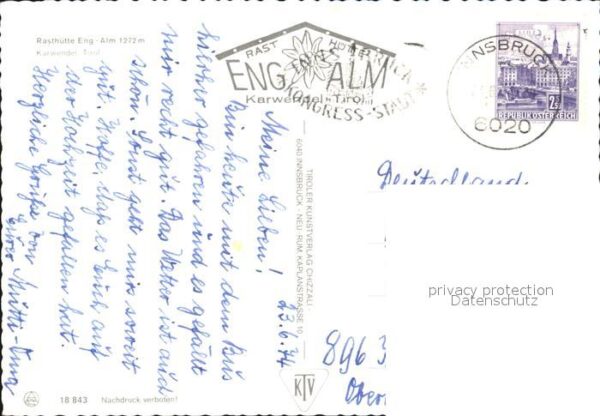 Rasthütte Eng - Alm 1272 m
Karwendel - Tirol
RAST HÜTTE
ENG ALM
Karwendel - Tirol
INNSBRUCK
KONGRESS-STADT
INNSBRUCK
6020
2.50
REPUBLIK ÖSTERREICH
23.6.74
Meine Lieben!
Bin heute mit dem Bus
hierher gefahren und es gefällt
mir recht gut. Das Wetter ist auch
schön. Sonst geht mir soweit
gut. Hoffe, daß es Euch auf
der Hochzeit gefallen hat.
Herzliche Grüße von
Eurer Mutti-Oma
TIROLER KUNSTVERLAG CHIZZALI
6040 INNSBRUCK - NEU-RUM, KAPLANSTRASSE 10
Deutschland
privacy protection
Datenschutz
896 3
Ober
KTV
18 843 Nachdruck verboten!